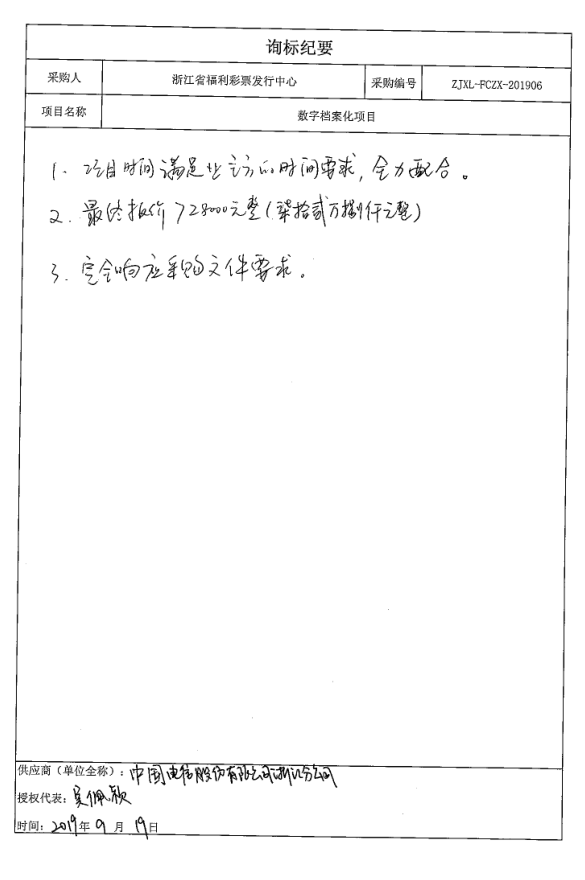 询标纪要
采购人 浙江省福利彩票发行中心 采购编号 ZJXL-FCZX-201906
项目名称 数字档案化项目
1. 项目时间满足业主方的时间要求,全力配合。
2. 最终报价728000元整(柒拾贰万捌仟元整)
3. 完全响应采购文件要求。
供应商(单位全称):中国电信股份有限公司浙江分公司
授权代表:吴佩颖
时间:2019年9月19日